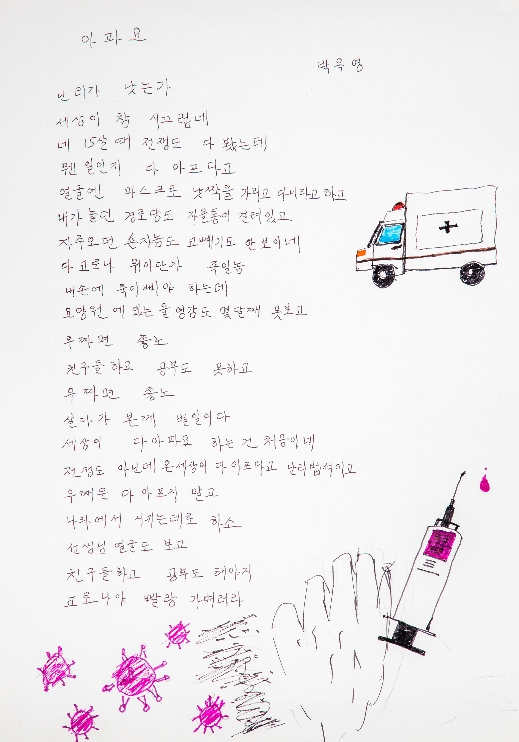 아파요
박옥영
난리가 낫는가
세상이 참 시끄럽네
네 15살 때 전쟁도 다 봤는데
뭔 일인지 다 아프다고
얼굴엔 마스크로 낯짝을 가리고 다니라고 하고
내가 놀던 경로당도 자물통이 걸려있고
자주오던 손자놈도 코빼기도 안보이네
다 코로나 뭐이단가 죽일놈
내손에 죽이삐야 하는데
요양원에 있는 울영감도 몇달째 못보고
우짜면 좋노
친구들하고 공부도 못하고
우짜면 좋노
살다가 본께 별일이다
세상이 다아파요 하는건 처음이네
전쟁도 아닌데 온세상이 다 아프다고 난리법석이고
우쨋든 다 아프지 말고
나라에서 시키는데로 하소
선생님 얼굴도 보고
친구들하고 공부도 해야지
코로나야 빨랑 가버려라